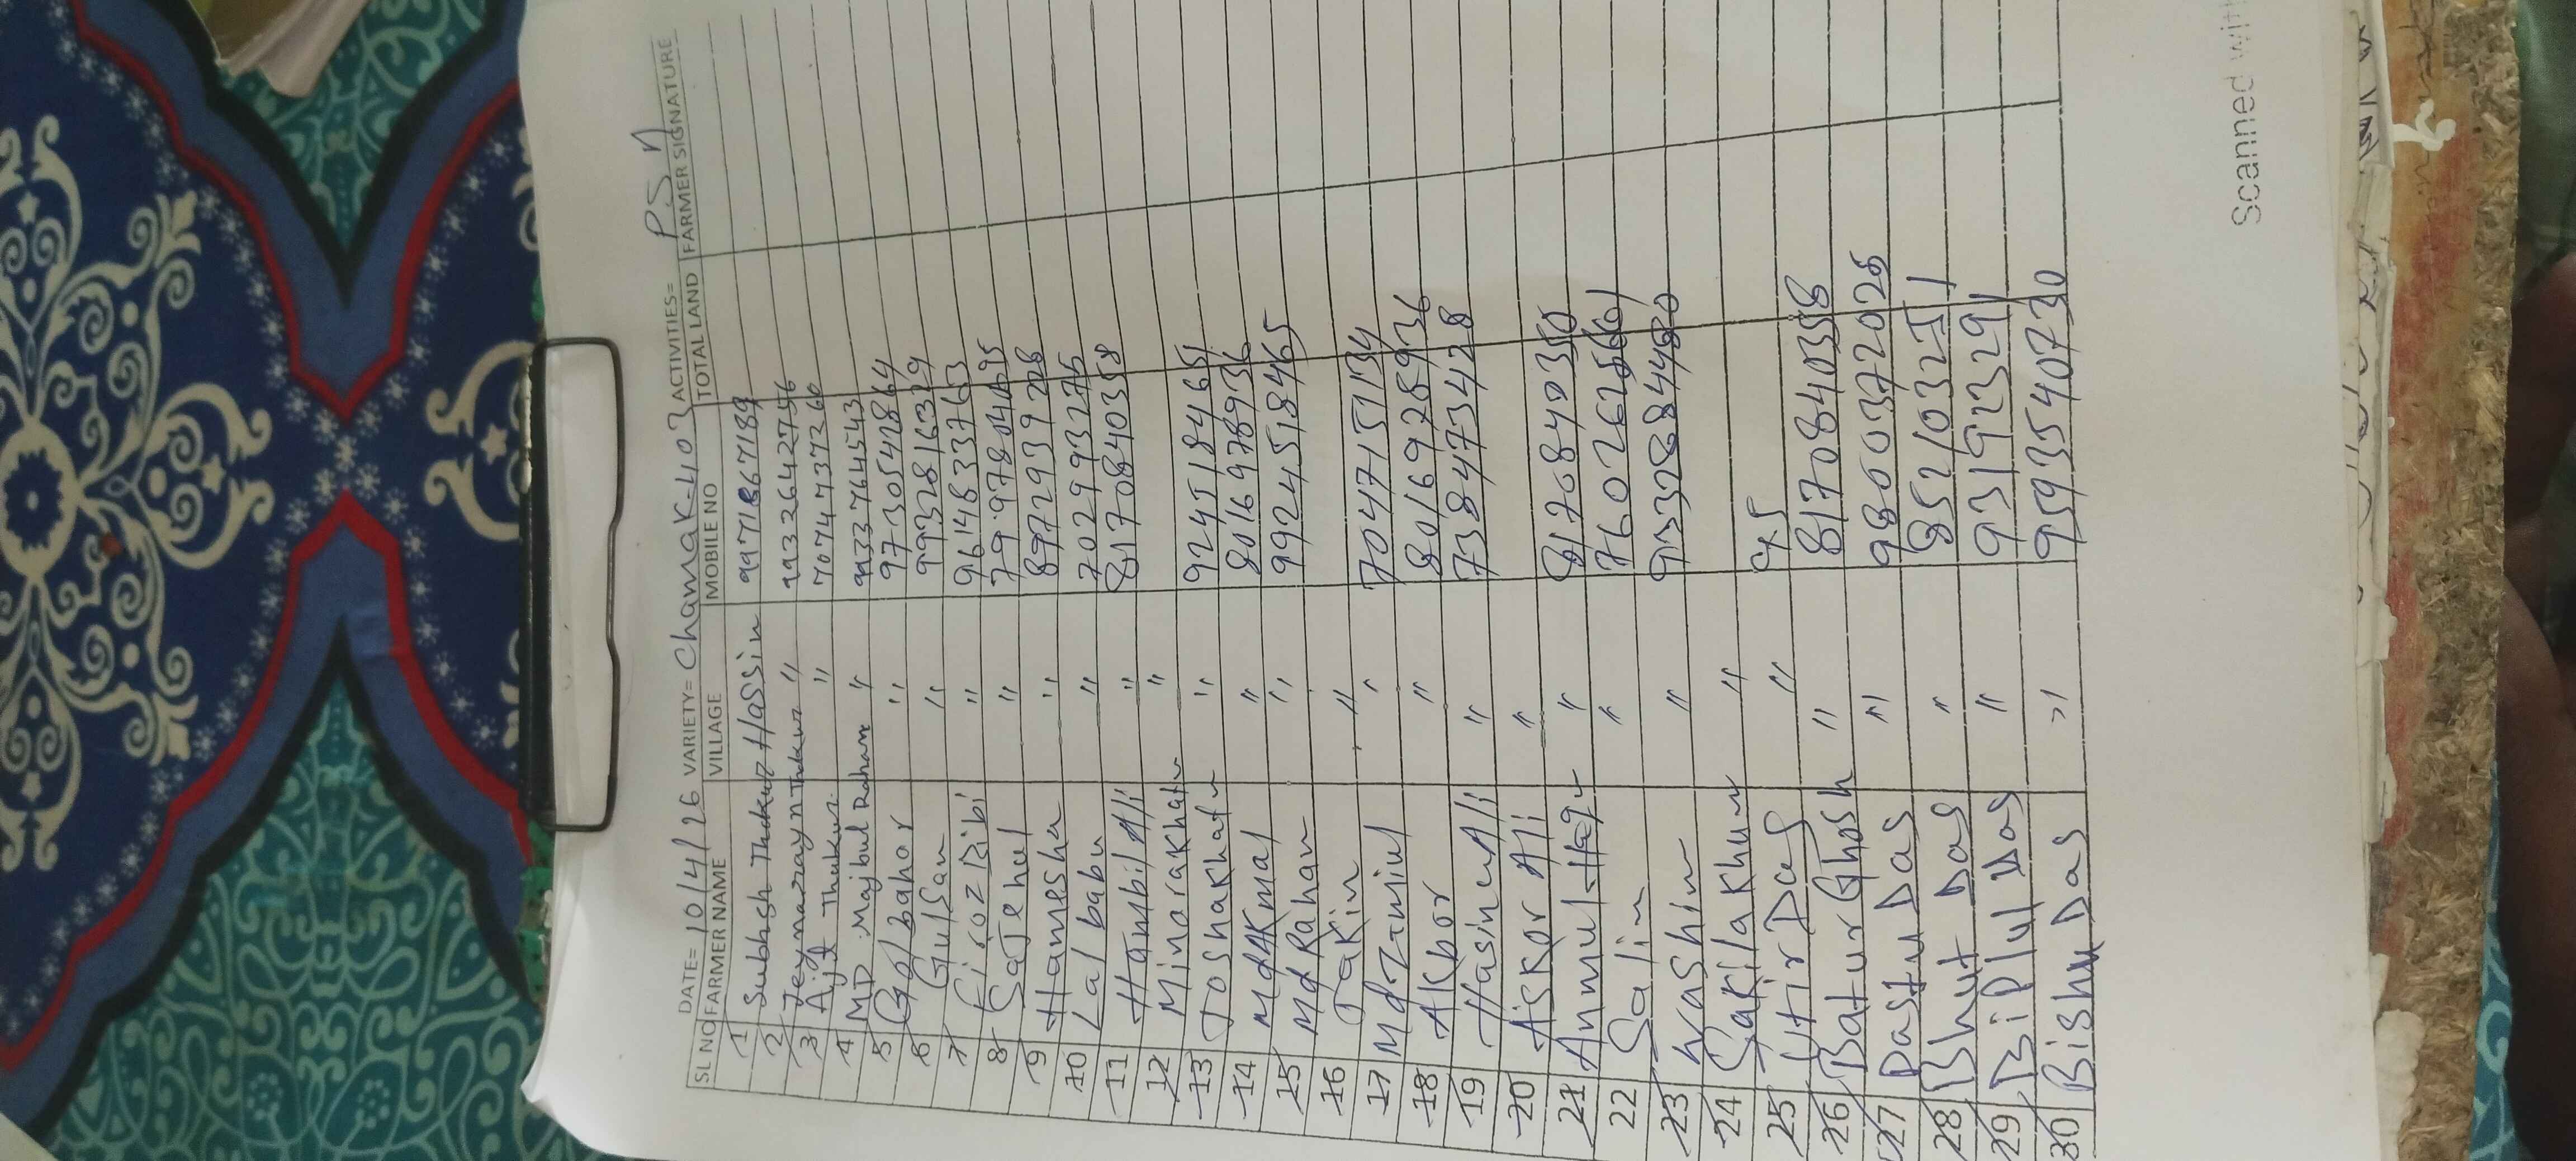 DATE= 10/4/26 VARIETY= Chamak-403 ACTIVITIES= PSA
SL NO FARMER NAME VILLAGE MOBILE NO TOTAL LAND FARMER SIGNATURE
1 Subhash Thakur Hassin 9971867189
2 Jeynarayn Thakur " 9332642756
3 Ajit Thakur " 7074737260
4 MD Majibul Raham " 9333764543
5 Golbahor " 9730547864
6 Gulsan " 99932816329
7 Firoz Bibi " 9614833763
8 Sajehul " 7997804695
9 Hamesha " 8972939208
10 Lal babu " 7029932775
11 Hambil Ali " 8170840358
12 Minarakhatu "
13 Joshakhatu " 9245184651
14 Md Akmal " 8016978936
15 Md Rahan " 9924518465
16 Jakin "
17 Md Zomiul " 7047151134
18 Akbor " 8016978936
19 Hasinu Ali " 7384734228
20 Aiskor Ali "
21 Anmul Haqu " 8170840350
22 Salin " 7602625661
23 Washin " 9332884480
24 Sakila Khum "
25 Utir Das "
26 Batur Ghosh " 8170840358
27 Dastu Das " 9800372026
28 Bhut Das " 852103251
29 Biplul Das " 931923291
30 Bishu Das " 9593540730
Scanned with